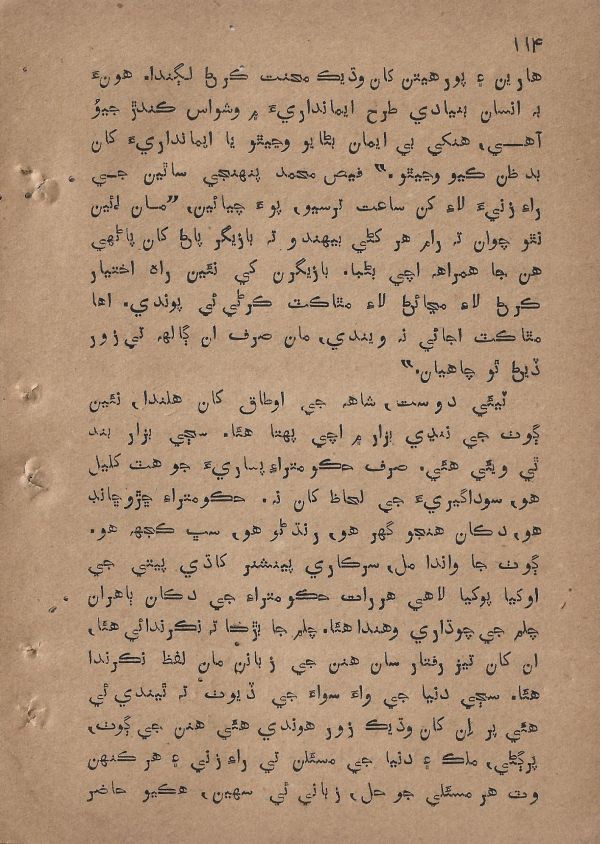 ۱۱۴
هارين ۽ پورهيتن کان وڌيڪ محنت ڪرڻ لڳندا. هونءَ
بہ انسان بنيادي طرح ايمانداريءَ ۾ وشواس ڪندڙ جيوُ
آهـــي، هنکي بي ايمان بڻايو وڃيٿو يا ايمانداريءَ کان
بد ظن ڪيو وڃيٿو.“ فيض محمد پنهنجي ساٿين جــي
راءِ زنيءَ لاءِ کن ساعت ترسيو، پوءِ چيائين، ”مــان ائين
نٿو چوان تہ رام هر ڪٿي بيهندو تہ بازيگر پاڻ کان پاڻهي
هن جا همراهہ اچي بڻبا. بازيگرن کي نئين راه اختيار
ڪرڻ لاءِ مڃائڻ لاءِ مٿاڪٽ ڪرڻي ئي پوندي. اها
مٿاڪٽ اجائي نہ ويندي، مان صرف ان ڳالهہ تي زور
ڏيڻ ٿو چاهيان.“
ٽيئي دوست، شاهہ جي اوطاق کان هلندا، نئين
ڳوٺ جي ننڍي بزار ۾ اچي پهتا هئا. سڄي بزار بند
ٿي ويئي هئي. صرف حڪومتراءِ پساريءَ جو هٽ کليل
هو، سوداگيريءَ جي لحاظ کان نہ. حڪومتراءِ ڇڙو ڇانڊ
هو، دڪان هنجو گهر هو، رنڌڻو هو، سڀ ڪجهہ هو.
ڳوٺ جا واندا مل، سرڪاري پينشنر کاڌي پيتي جي
اوکيا پوکيا لاهي هررات حڪومتراءِ جي دڪان ٻاهران
چلم جي چوڌاري وهندا هئا. چلم جا بڙڪا تہ نڪرندائي هئا،
ان کان تيز رفتار سان هنن جي زبانن مان لفظ نڪرندا
هئا. سڄي دنيا جي واءُ سواءُ جي ڏيوٺ تہ ٿيندي ئي
هئي پر اِن کان وڌيڪ زور هوندي هئي هنن جي ڳوٺ،
پرڳڻي، ملڪ ۽ دنيا جي مسئلن تي راءِ زني ۽ هر ڪنهن
وٽ هر مسئلي جو حل، زباني ئي سهين، هڪيو حاضر